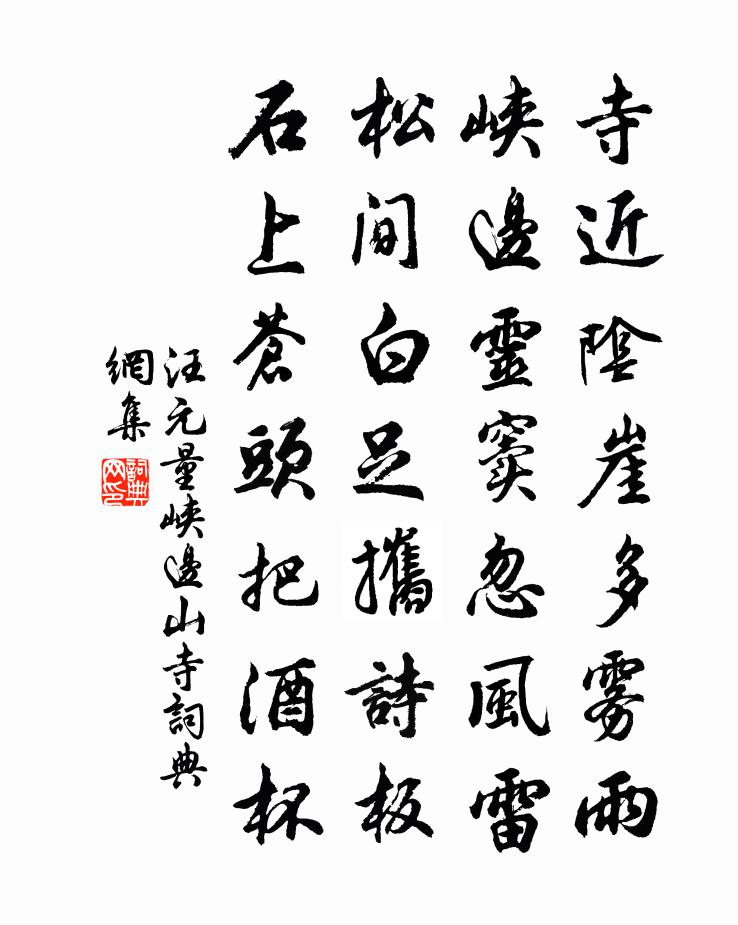 寺近陰崖多雾雨
峽邊靈竇忽風雷
松间白足攜詩板
石上蒼頭把酒杯
汪元量峽邊山寺詞典
網集
詞典网印